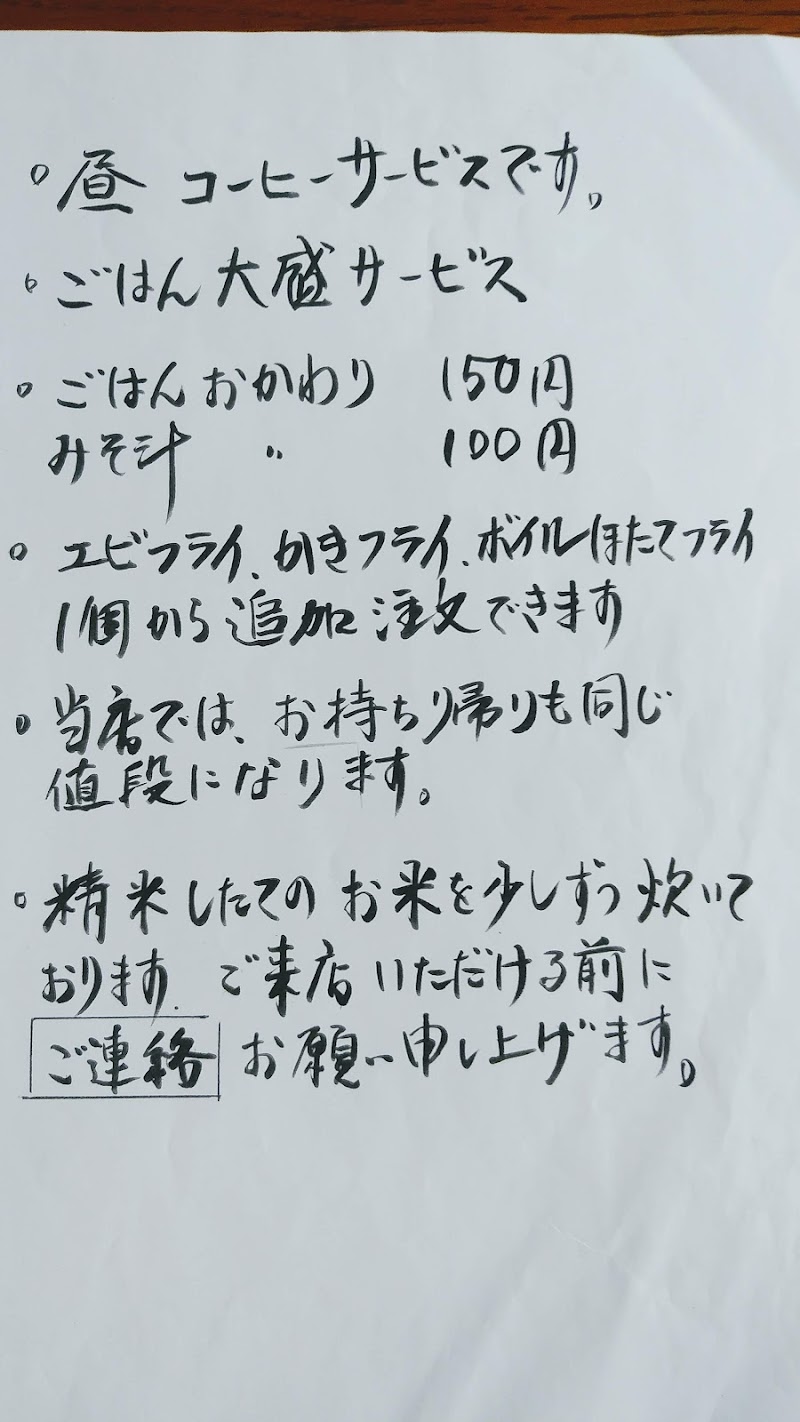 ○ 昼 コーヒーサービスです。
○ ごはん大盛サービス
○ ごはんおかわり 150円
みそ汁 〃 100円
○ エビフライ、かきフライ、ボイルほたてフライ
1個から追加注文できます
○ 当店では、お持ち帰りも同じ
値段になります。
○ 精米したてのお米を少しずつ炊いて
おります。ご来店いただける前に
ご連絡 お願い申し上げます。